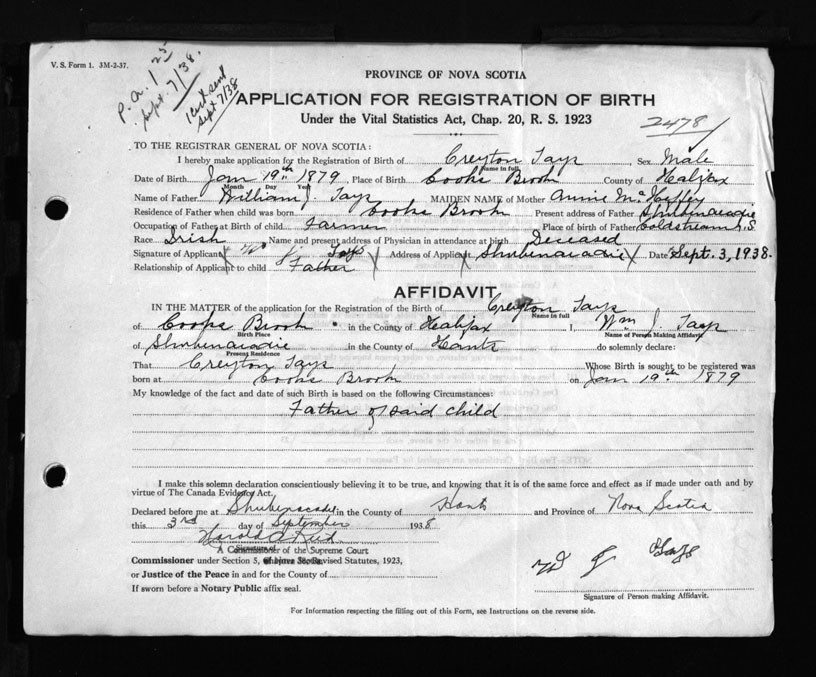 V. S. Form 1. 3M-2-37.
P. a. 1 25
Sept. 7/38.
1 Cert sent
Sept 7/38
PROVINCE OF NOVA SCOTIA
APPLICATION FOR REGISTRATION OF BIRTH
Under the Vital Statistics Act, Chap. 20, R. S. 1923
2478
TO THE REGISTRAR GENERAL OF NOVA SCOTIA:
I hereby make application for the Registration of Birth of Creyton Tays Sex Male
Name in full
Date of Birth Jan 19th 1879 Place of Birth Cooks Brook County of Halifax
Month Day Year
Name of Father William J. Tays MAIDEN NAME of Mother Annie McHeffey
Residence of Father when child was born Cooks Brook Present address of Father Shubenacadie
Occupation of Father at Birth of child Farmer Place of birth of Father Coldstream N.S.
Race Irish Name and present address of Physician in attendance at birth Deceased
Signature of Applicant W J. Tays Address of Applicant Shubenacadie Date Sept. 3, 1938.
Relationship of Applicant to child Father
AFFIDAVIT,
IN THE MATTER of the application for the Registration of the Birth of Creyton Tays
Name in full
of Cooks Brook in the County of Halifax I Wm J. Tays
Birth Place Name of Person Making Affidavit
of Shubenacadie in the County of Hants do solemnly declare:
Present Residence
That Creyton Tays Whose Birth is sought to be registered was
born at Cooks Brook on Jan 19th 1879
My knowledge of the fact and date of such Birth is based on the following Circumstances:
Father of said child
I make this solemn declaration conscientiously believing it to be true, and knowing that it is of the same force and effect as if made under oath and by
virtue of The Canada Evidence Act.
Declared before me at Shubenacadie in the County of Hants and Province of Nova Scotia
this 3rd day of September 1938
Harold A Reid
A Commissioner of the Supreme Court
Commissioner under Section 5, Revised Statutes, 1923,
or Justice of the Peace in and for the County of
If sworn before a Notary Public affix seal.
W J Tays
Signature of Person making Affidavit.
For Information respecting the filling out of this Form, see Instructions on the reverse side.